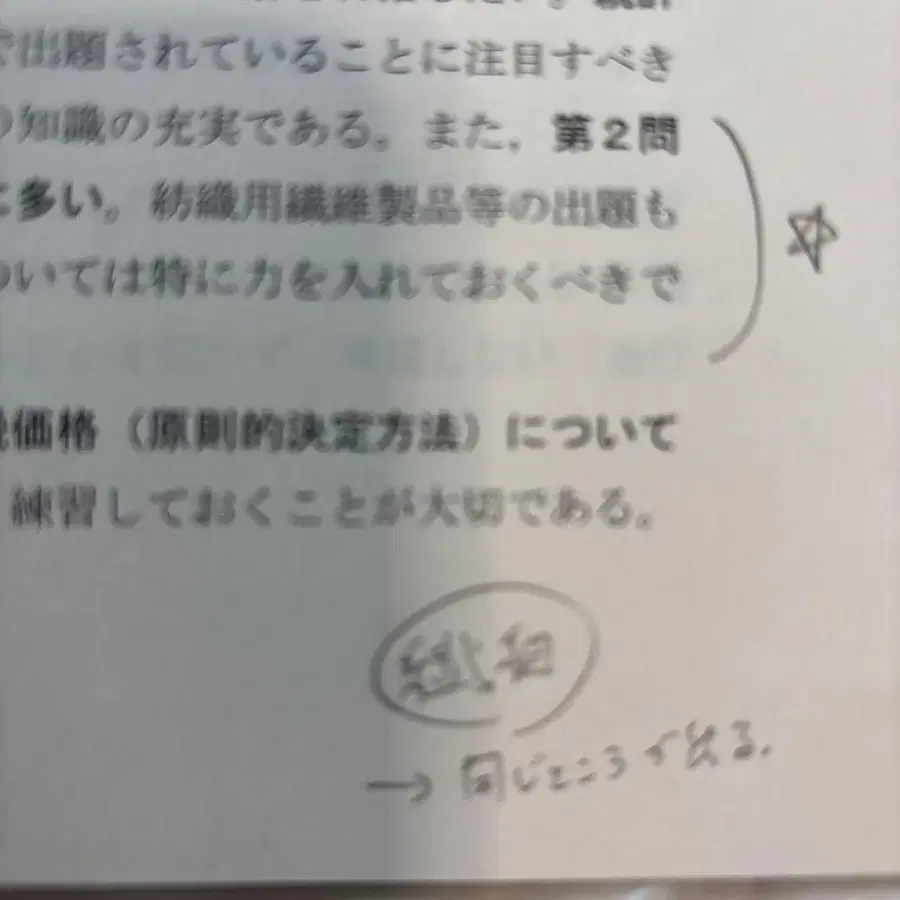 で出題されていることに注目すべき
の知識の充実である。また，第2問
に多い。紡織用繊維製品等の出題も
ついては特に力を入れておくべきで
税価格（原則的決定方法）について
練習しておくことが大切である。
→ 同じところで出る.